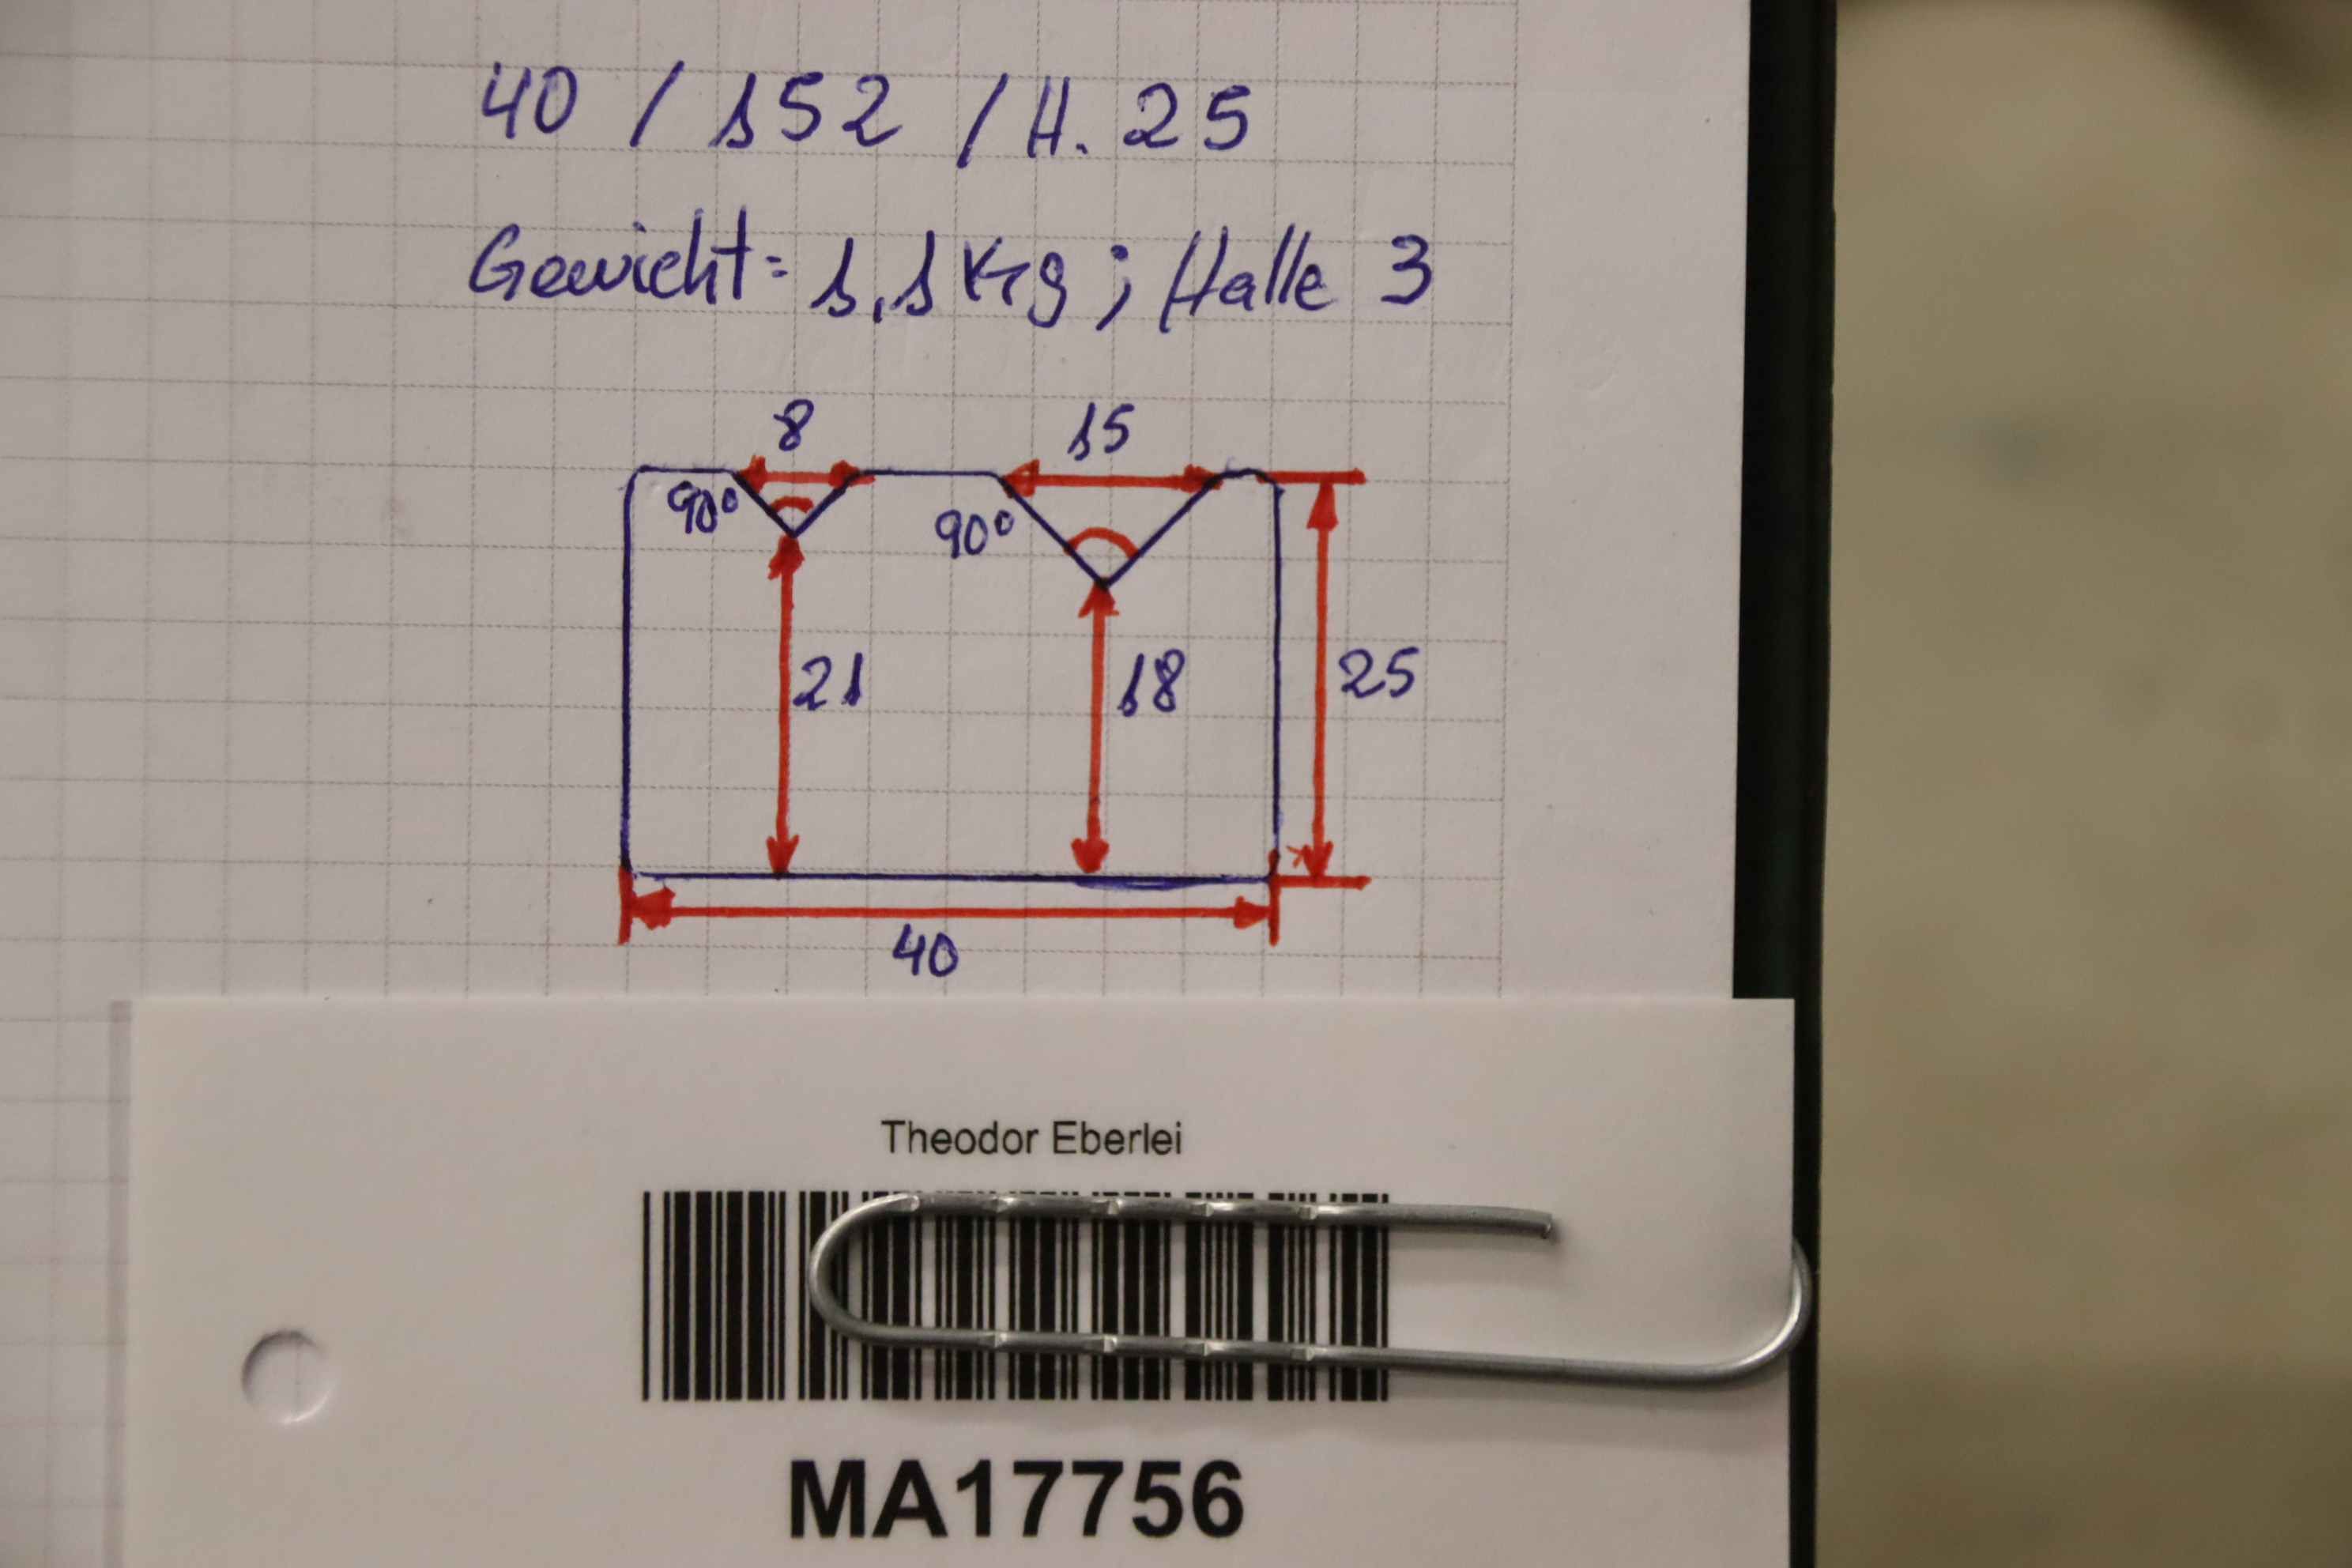 40 / 152 / H. 25
Gewicht: 1,1 Kg ; Halle 3
8
15
90°
90°
21
18
25
40
Theodor Eberlei
MA17756